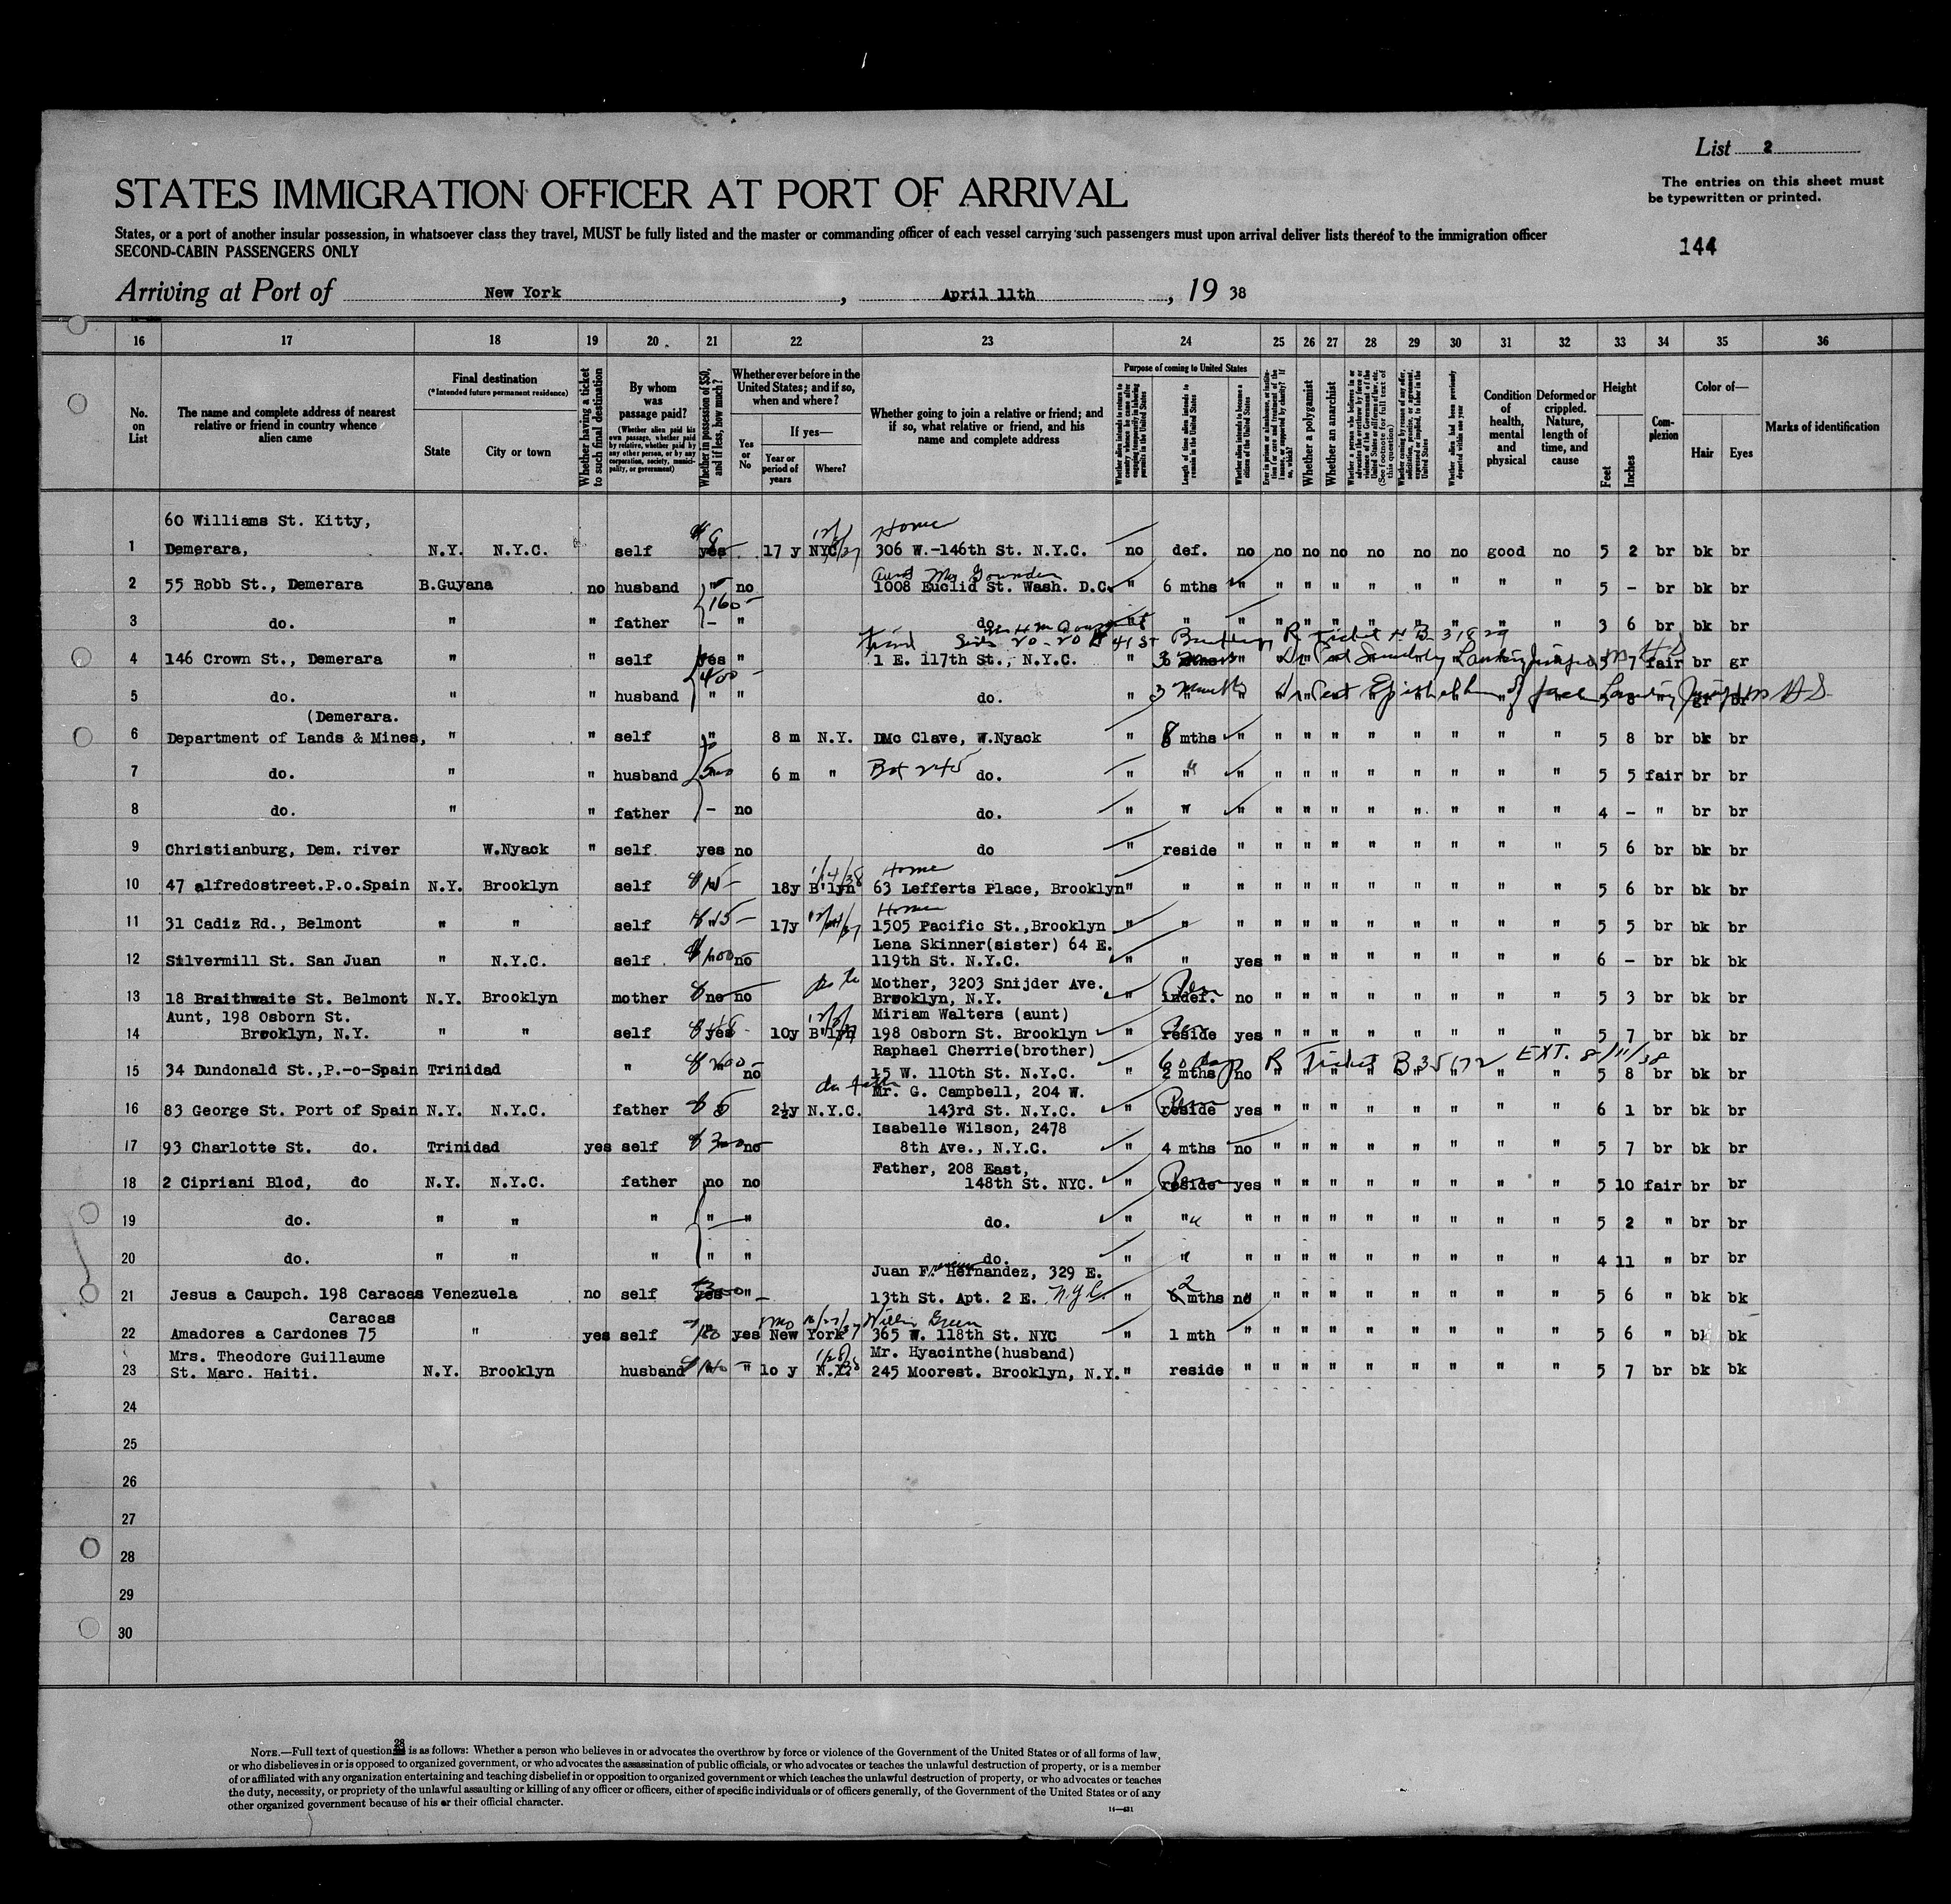 List 2
The entries on this sheet must
be typewritten or printed.
STATES IMMIGRATION OFFICER AT PORT OF ARRIVAL
States, or a port of another insular possession, in whatsoever class they travel, MUST be fully listed and the master or commanding officer of each vessel carrying such passengers must upon arrival deliver lists thereof to the immigration officer
SECOND-CABIN PASSENGERS ONLY
144
Arriving at Port of New York, April 11th, 19 38
16 17 18 19 20 21 22 23 24 25 26 27 28 29 30 31 32 33 34 35 36
No. on List
The name and complete address of nearest relative or friend in country whence alien came
Final destination
(*Intended future permanent residence)
State
City or town
Whether having a ticket to such final destination
By whom was passage paid?
(Whether alien paid his own passage, whether paid by relative, whether paid by any other person, or by any corporation, society, municipality, or government)
Whether in possession of $50, and if less, how much?
Whether ever before in the United States; and if so, when and where?
Yes or No
If yes—
Year or period of years
Where?
Whether going to join a relative or friend; and if so, what relative or friend, and his name and complete address
Purpose of coming to United States
Length of time alien intends to remain in the United States
Whether alien intends to become a citizen of the United States
Whether a polygamist
Whether an anarchist
Whether alien had been previously deported within one year
Condition of health, mental and physical
Deformed or crippled. Nature, length of time, and cause
Height
Feet
Inches
Complexion
Color of—
Hair
Eyes
Marks of identification
60 Williams St. Kitty, Home
1 Demerara, N.Y. N.Y.C. self yes 17 y NYC 306 W.-146th St. N.Y.C. no def. no no no no no no no good no 5 2 br bk br
Aunt Mrs
2 55 Robb St., Demerara B.Guyana no husband " no 1008 Euclid St. Wash. D.C. " 6 mths " " " " " " " " " 5 - br bk br
160
3 do. " " father - " do. " " " " " " " " " " " 3 6 br bk br
Friend R Ticket
4 146 Crown St., Demerara " " self yes " 1 E. 117th St., N.Y.C. " 5 7 fair br gr
400
5 do. " " husband " " do. " 3 months
(Demerara.
6 Department of Lands & Mines, " " self " 8 m N.Y. Mc Clave, W.Nyack " 8 mths " " " " " " " " " 5 8 br bk br
7 do. " " husband 500 6 m " Box 245 do. " " " " " " " " " " " 5 5 fair br br
8 do. " " father - no do. " " " " " " " " " " " 4 - " br br
9 Christianburg, Dem. river W.Nyack " self yes no do " reside " " " " " " " " " 5 6 br bk br
1/4/38 Home
10 47 alfredostreet.P.o.Spain N.Y. Brooklyn self 18y B'lyn 63 Lefferts Place, Brooklyn " " " " " " " " " " " 5 6 br bk br
Home
11 31 Cadiz Rd., Belmont " " self $15- 17y 1505 Pacific St.,Brooklyn " " " " " " " " " " " 5 5 br bk br
Lena Skinner(sister) 64 E.
12 Silvermill St. San Juan " N.Y.C. self $100 no 119th St. N.Y.C. " " yes " " " " " " " " 6 - br bk bk
Mother, 3203 Snijder Ave.
13 18 Braithwaite St. Belmont N.Y. Brooklyn mother no no Brooklyn, N.Y. " indef. no " " " " " " " " 5 3 br bk br
Aunt, 198 Osborn St. Miriam Walters (aunt)
14 Brooklyn, N.Y. " " self yes 10y B'lyn 198 Osborn St. Brooklyn " reside yes " " " " " " " " 5 7 br bk br
Raphael Cherrie(brother) 60 days R Ticket B 35172 EXT. 8/11/38
15 34 Dundonald St.,P.-o-Spain Trinidad " $200- no 15 W. 110th St. N.Y.C. " 2 mths no " " " " " " " 5 8 br bk br
Mr. G. Campbell, 204 W.
16 83 George St. Port of Spain N.Y. N.Y.C. father $5 2½y N.Y.C. 143rd St. N.Y.C. " reside yes " " " " " " " " 6 1 br bk br
Isabelle Wilson, 2478
17 93 Charlotte St. do. Trinidad yes self $300 no 8th Ave., N.Y.C. " 4 mths no " " " " " " " " 5 7 br bk br
Father, 208 East,
18 2 Cipriani Blod, do N.Y. N.Y.C. father no no 148th St. NYC. " reside yes " " " " " " " " 5 10 fair br br
19 do. " " " " " do. " " " " " " " " " " " 5 2 " br br
20 do. " " " " " do. " " " " " " " " " " " 4 11 " br br
Juan F. Hernandez, 329 E.
21 Jesus a Caupch. 198 Caracas Venezuela no self yes " 13th St. Apt. 2 E. N.Y.C. " 2 mths no " " " " " " " " 5 6 " bk bk
Caracas
22 Amadores a Cardones 75 " yes self yes New York 365 W. 118th St. NYC " 1 mth " " " " " " " " " 5 6 " bk bk
Mrs. Theodore Guillaume Mr. Hyacinthe(husband)
23 St. Marc. Haiti. N.Y. Brooklyn husband " 10 y N.Y. 245 Moorest. Brooklyn, N.Y. " reside " " " " " " " " " 5 7 br bk bk
24
25
26
27
28
29
30
NOTE.—Full text of question 28 is as follows: Whether a person who believes in or advocates the overthrow by force or violence of the Government of the United States or of all forms of law,
or who disbelieves in or is opposed to organized government, or who advocates the assassination of public officials, or who advocates or teaches the unlawful destruction of property, or is a member
of or affiliated with any organization entertaining and teaching disbelief in or opposition to organized government or which teaches the unlawful destruction of property, or who advocates or teaches
the duty, necessity, or propriety of the unlawful assaulting or killing of any officer or officers, either of specific individuals or of officers generally, of the Government of the United States or of any
other organized government because of his or their official character.